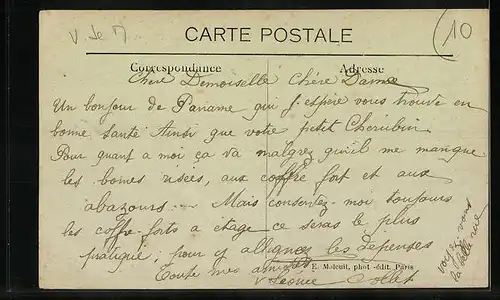 V. Se M
10
CARTE POSTALE
Correspondance Adresse
Chère Demoiselle Chère Dame
Un bonjour de Paname qui j'espère vous trouve en
bonne santé Ainsi que votre petit Chérubin
Pour quant a moi ça va malgrez qu'il me manque
les bonnes usées, aux coffre fort et aux
abazours — Mais conservez-moi toujours
les coffre-forts a étage ce seras le plus
pratique, pour y allignez les dépenses
Toute mes amitiés
E. Malcuit, phot.-édit. Paris
Léonce Collet
voyez vous
la belle rue